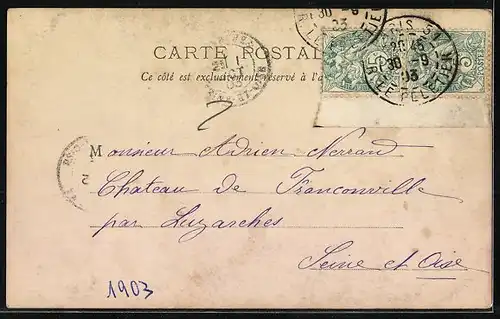 CARTE POSTAL
Ce côté est exclusivement réservé à l'a
PARIS 37
20 45
30 -9
03
R. LE PELETIER
5
Monsieur Adrien Nerrand
Chateau de Franconville
par Luzarches
Seine et Oise
1903